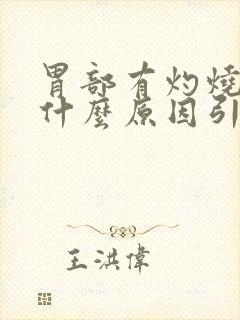 胃部有灼燒
什麼原因引
王洪偉